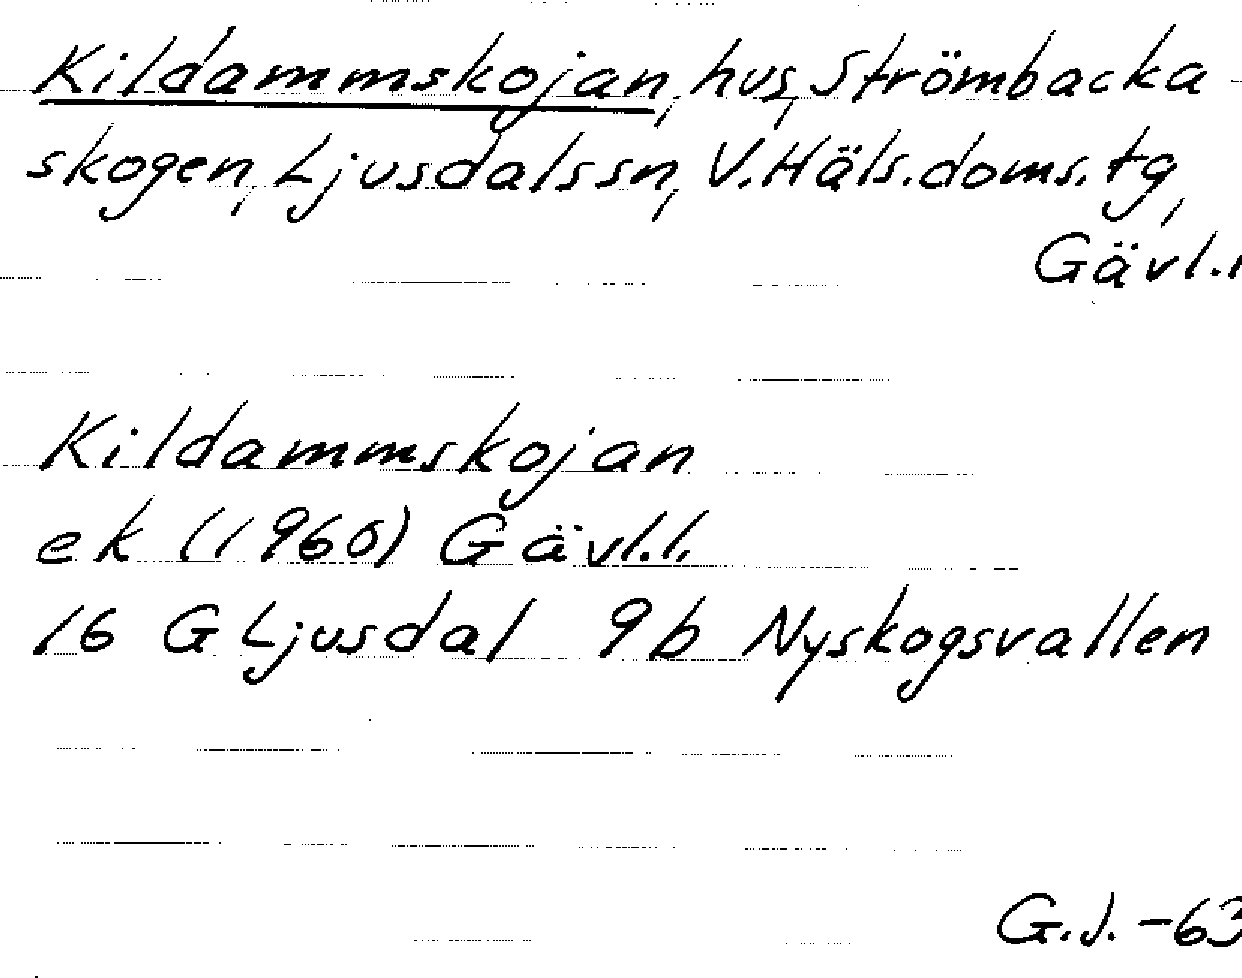 Kildammskojan, hus, Strömbacka-
skogen, Ljusdals sn, V. Häls. doms. tg,
Gävl. l
Kildammskojan
ek (1960) Gävl. l.
16 G Ljusdal 9b Nyskogsvallen
G.J. -63